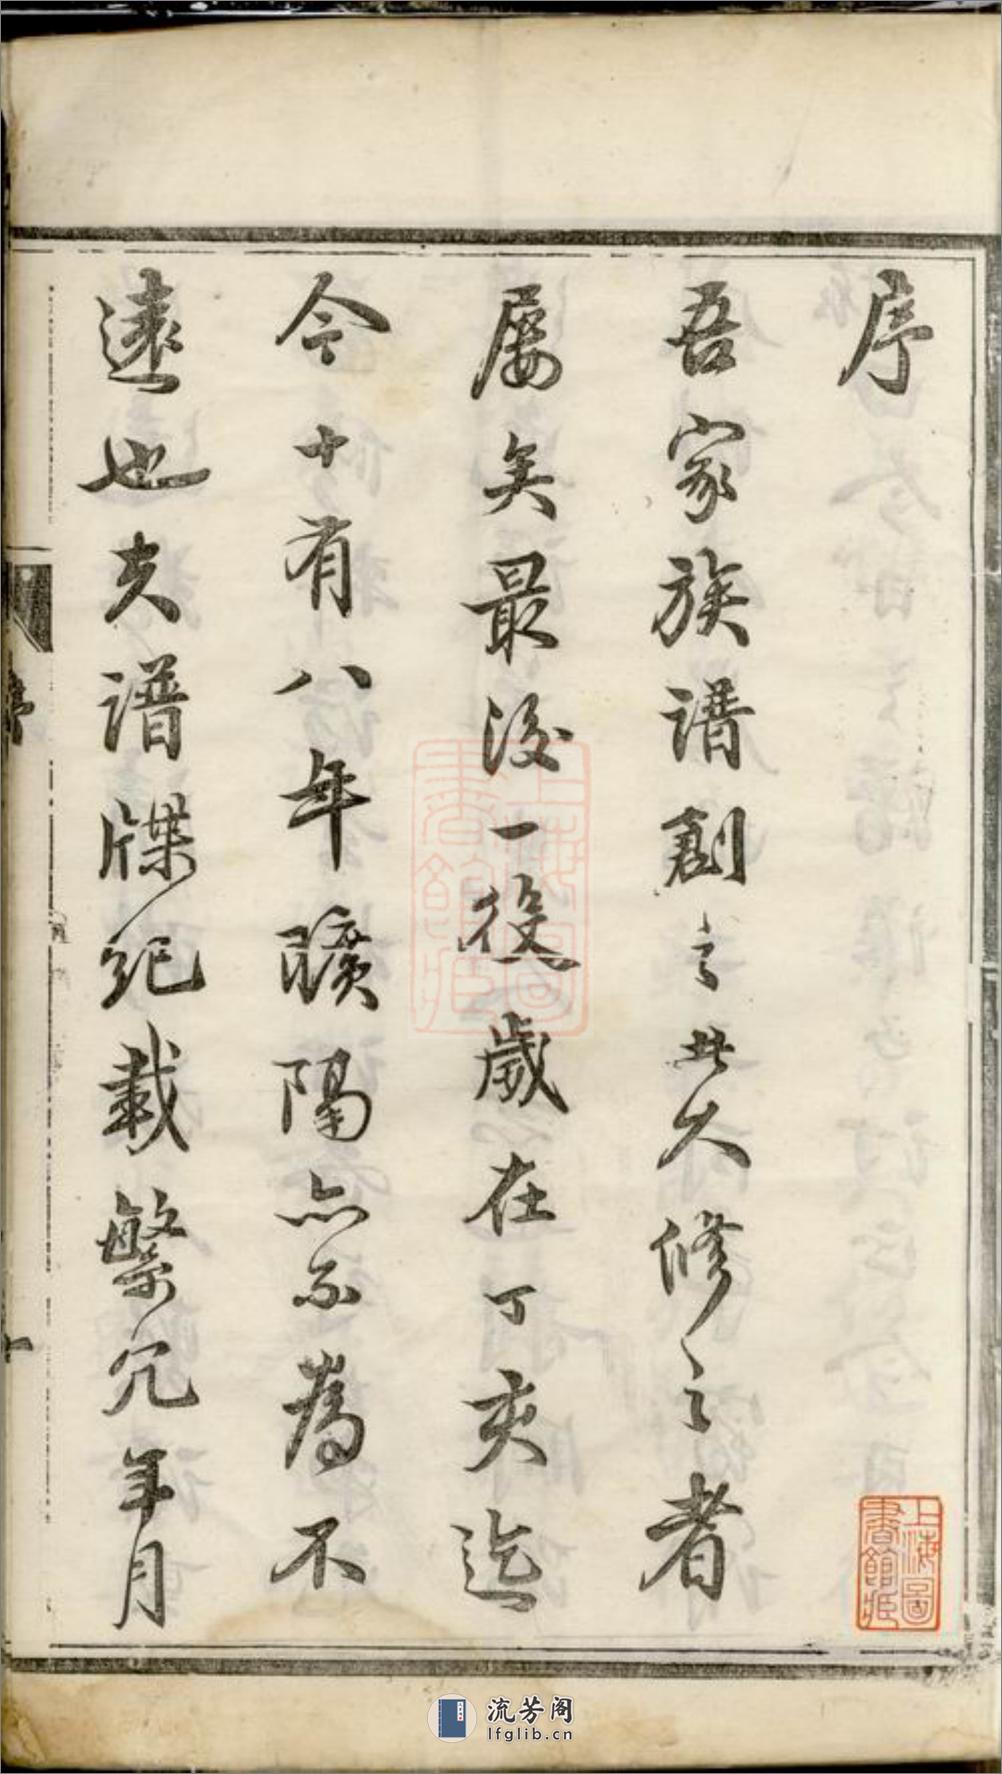 序
吾家族譜創之甚久修之者
屢矣最後一役歲在丁亥迄
今十有八年曠隔亦不為不
遠也夫譜牒紀載繁冗年月
序
上海圖書館藏
上海圖書館藏
流芳阁
lfglib.cn